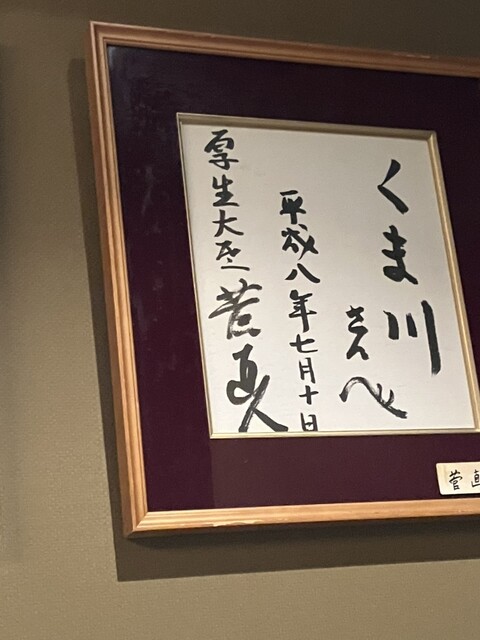 くま川
さんへ
平成八年七月十日
厚生大臣 菅直人
菅直